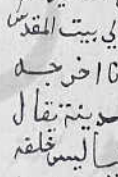 لي بيت المقدس
اخرجه
مدينة يقال
ليس خلفه